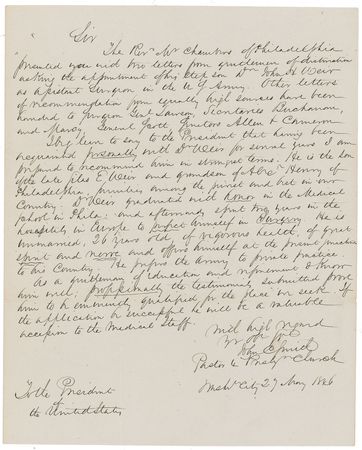 Sir
The Revd Mr Chambers of Philadelphia
presented you with two letters from gentlemen of distinction
asking the appointment of his step son Dr John H. Weir
as Assistant Surgeon in the U S Army. Other letters
of recommendation from equally high sources have been
handed to Surgeon Genl Lawson, Secretaries Buchanan,
and Marcy General Scott Senators Allen & Cameron
I beg leave to say to the President that having been
acquainted personally with Dr Weir for several years I am
prepared to recommend him in strongest terms. He is the son
of the late Silas E. Weir and grandson of Alexr Henry of
Philadelphia, families among the first and best in our
Country. Dr Weir graduated with honor in the Medical
School in Phila: and afterwards spent two years in the
hospitals in Europe to perfect himself in Surgery. He is
unmarried, 26 years old, of vigorous health, of great
spirit and nerve and offers himself at the present juncture
to his Country. He prefers the Army to private practice.
As a gentleman of education and refinement I know
him well: professionally the testimonials submitted prove
him to be eminently qualified for the place we seek. If
the application be successful he will be a valuable
accession to the Medical Staff.
With high regard
Yr
John C. Smith
Pastor 4 Presbyn Church
Washn City 27 May 1846
To the President
of the United States